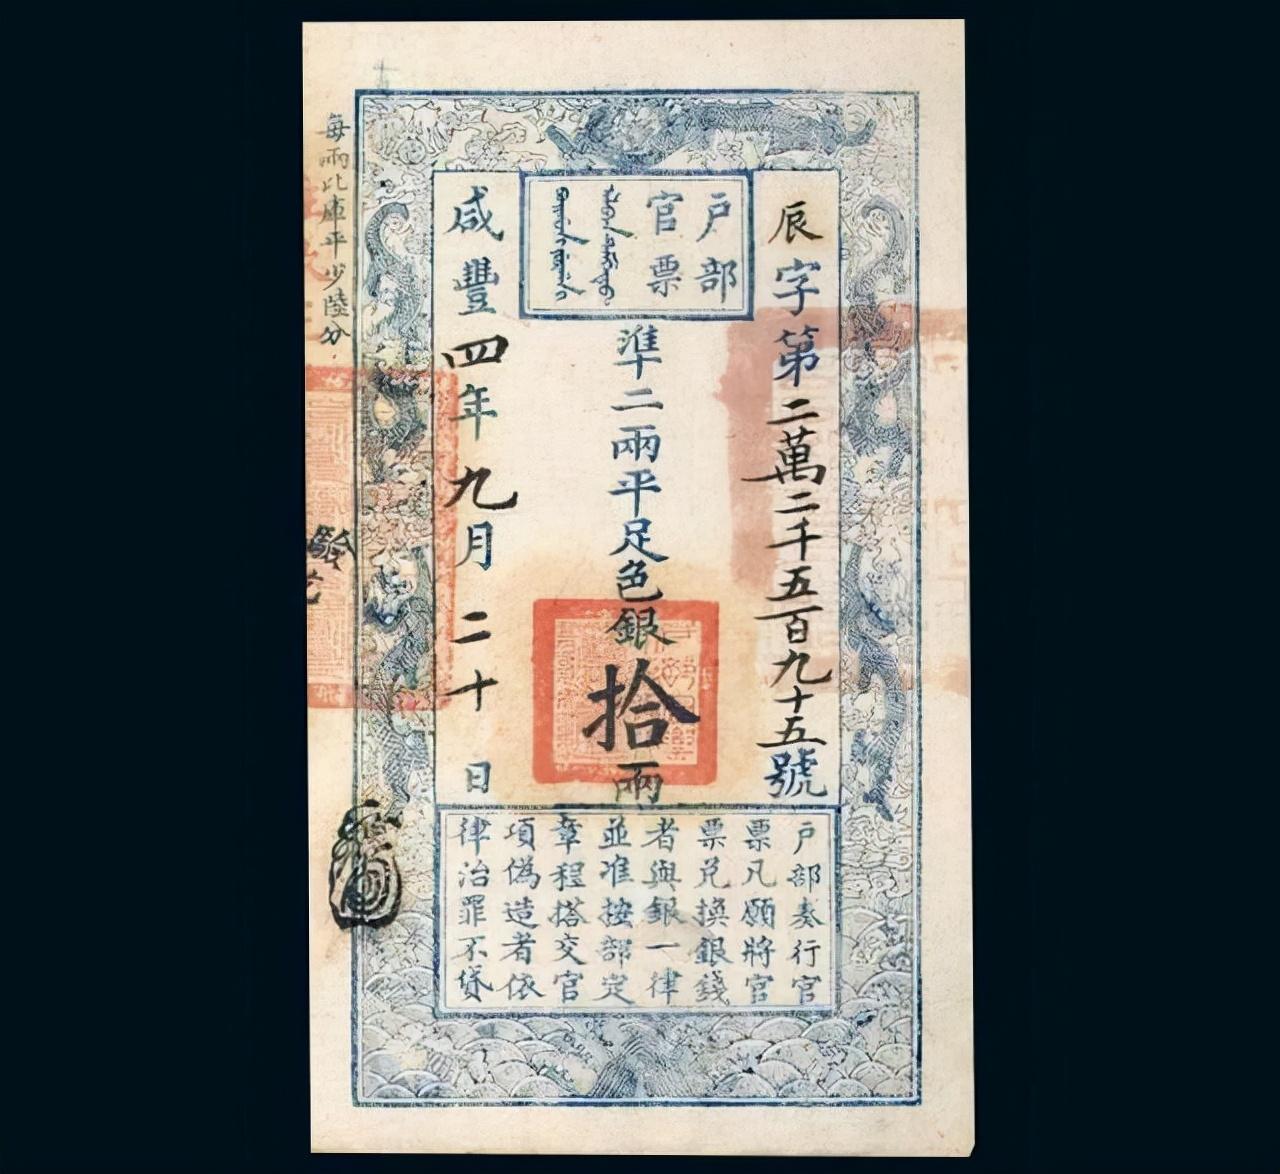 户部
官票
辰字第二萬二千五百九十五號
準二兩平足色銀拾兩
咸豐四年九月二十日
户部奏行官
票凡願將官
票兑換銀錢
者與銀一律
並准按部定
章程搭交官
項偽造者依
律治罪不貸
每兩比庫平少陸分